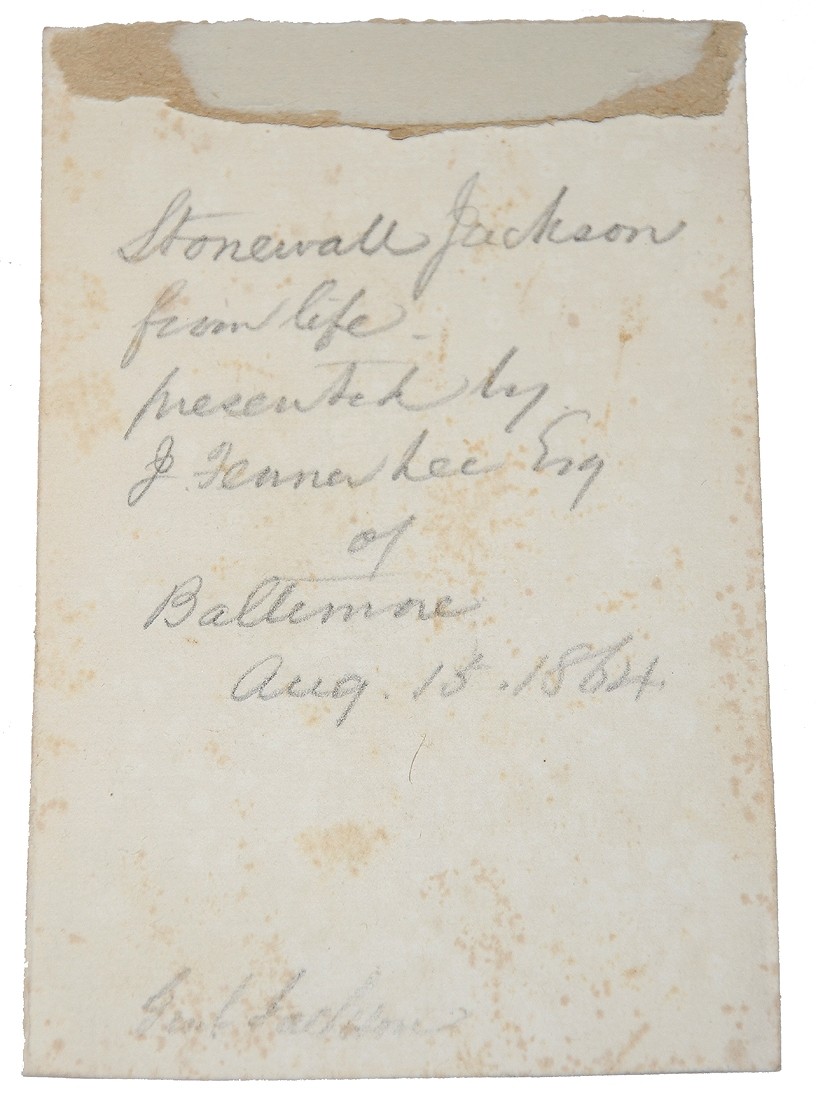 Stonewall Jackson
from life -
presented by
J. Fenner Lee Esq
of
Baltimore
Aug. 15. 1864
Genl Jackson